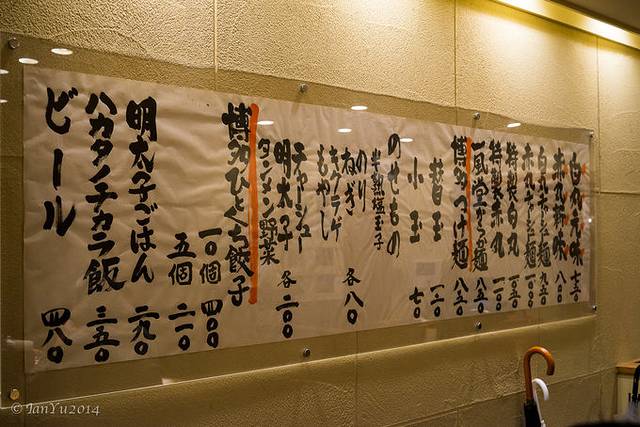 白丸元味 七五〇
赤丸新味 八五〇
白丸 麺 九五〇
赤丸 麺
特製白丸
特製赤丸
一風堂からか麺 八五〇
博多つけ麺 八五〇
替玉 一二〇
小玉 七〇
のせもの
半熟塩玉子
のり
ねぎ 各八〇
キクラゲ
もやし
チャーシュー
明太子 各二〇〇
タンメン野菜
博多ひとくち餃子
一〇個 四〇〇
五個 二一〇
明太子ごはん 二九〇
ハカタノチカラ飯 三五〇
ビール 四八〇
© IanYu2014